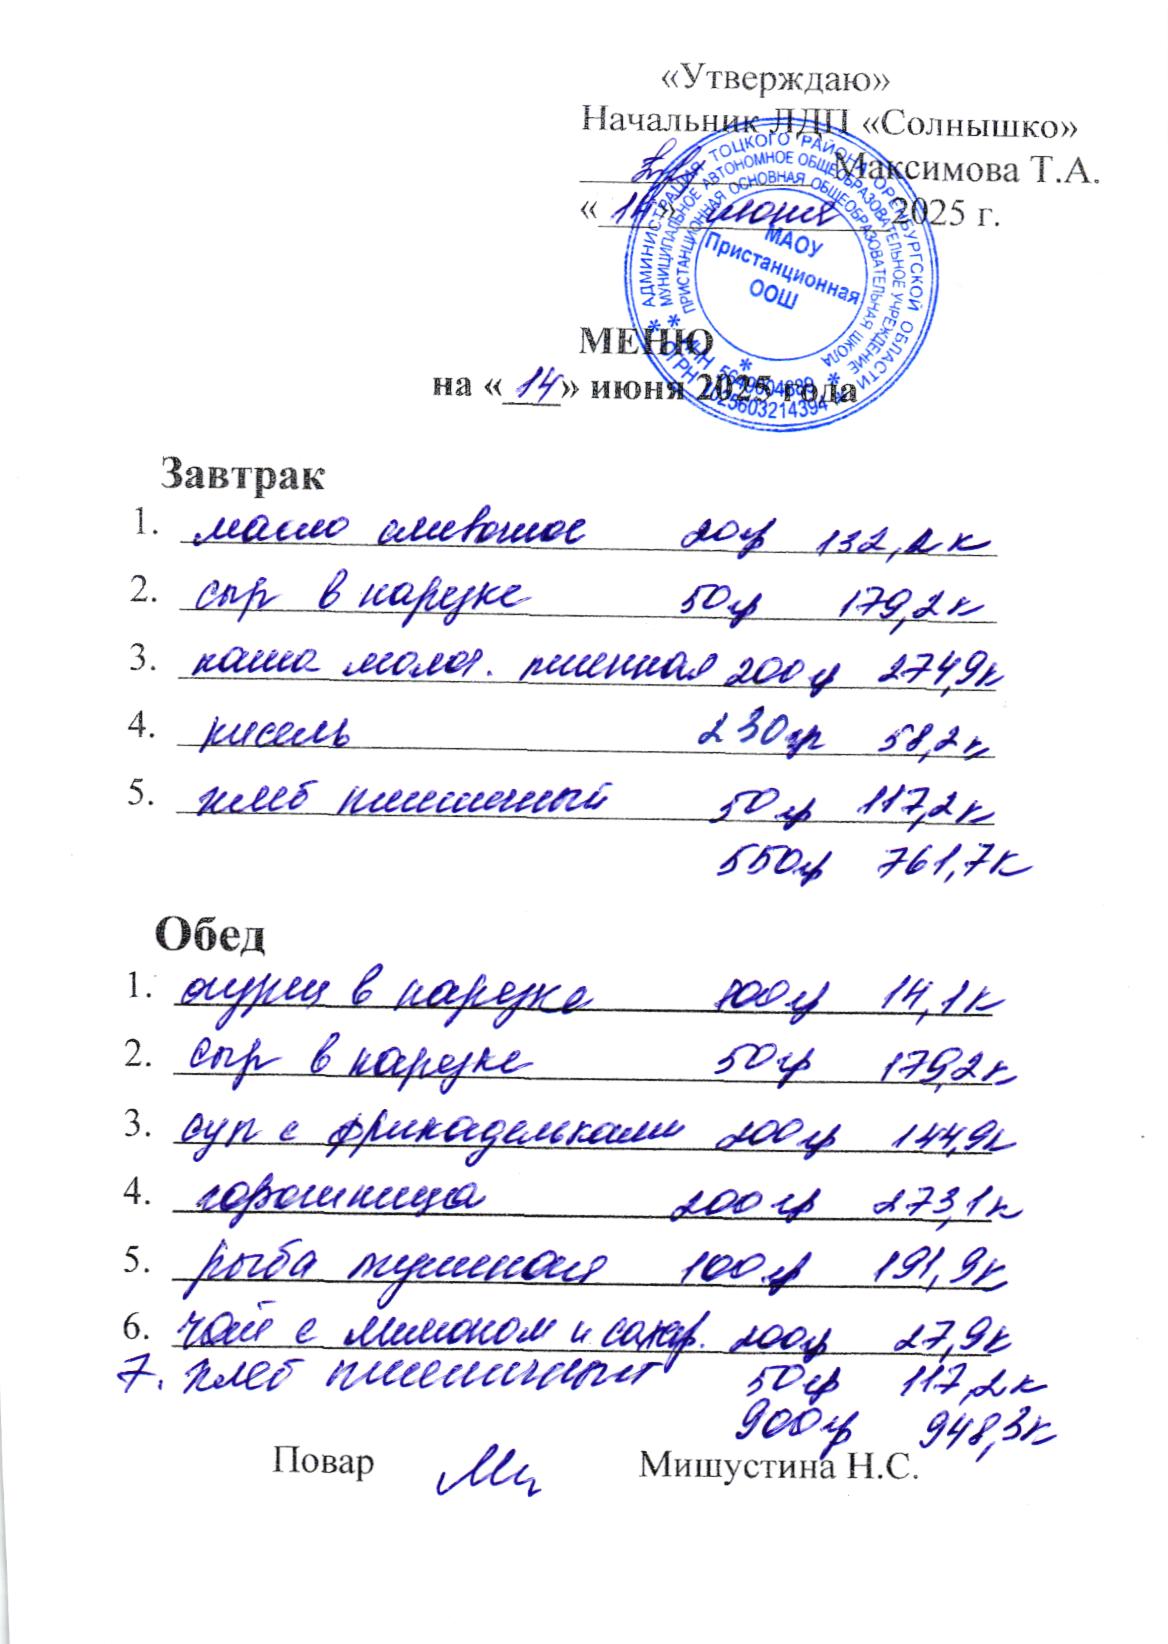 «Утверждаю»
Начальник ЛДП «Солнышко»
Максимова Т.А.
«14» июня 2025 г.
АДМИНИСТРАЦИЯ ТОЦКОГО РАЙОНА ОРЕНБУРГСКОЙ ОБЛАСТИ
МУНИЦИПАЛЬНОЕ АВТОНОМНОЕ ОБЩЕОБРАЗОВАТЕЛЬНОЕ УЧРЕЖДЕНИЕ
ПРИСТАНЦИОННАЯ ОСНОВНАЯ ОБЩЕОБРАЗОВАТЕЛЬНАЯ ШКОЛА
МАОУ
Пристанционная
ООШ
МЕНЮ
на «14» июня 2025 года
Завтрак
1. масло сливочное 20гр 132,2к
2. сыр в нарезке 50гр 179,2к
3. каша молоч. пшенная 200гр 274,9к
4. кисель 230гр 58,2к
5. хлеб пшеничный 50гр 117,2к
550гр 761,7к
Обед
1. огурец в нарезке 100гр 14,1к
2. сыр в нарезке 50гр 179,2к
3. суп с фрикадельками 200гр 144,9к
4. горошница 200гр 273,1к
5. рыба тушеная 100гр 191,9к
6. чай с лимоном и сахар. 200гр 27,9к
7. хлеб пшеничный 50гр 117,2к
900гр 948,3к
Повар Мишустина Н.С.